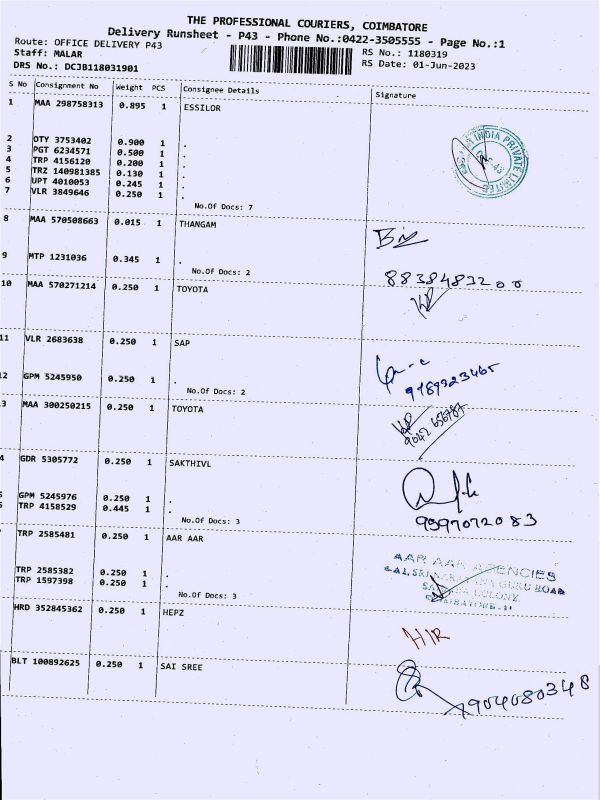 THE PROFESSIONAL COURIERS, COIMBATORE
Delivery Runsheet - P43 - Phone No.:0422-3505555 - Page No.:1
Route: OFFICE DELIVERY P43
RS No.: 1180319
Staff: MALAR
RS Date: 01-Jun-2023
DRS No.: DCJB118031901
S No Consignment No Weight PCS Consignee Details Signature
1 MAA 298758313 0.895 1 ESSILOR
INDIA PRIVATE LIMITED
2 OTY 3753402 0.900 1 .
3 PGT 6234571 0.500 1 .
4 TRP 4156120 0.200 1 .
5 TRZ 140981385 0.130 1 .
6 UPT 4010053 0.245 1 .
7 VLR 3849646 0.250 1 .
No.Of Docs: 7
8 MAA 570508663 0.015 1 THANGAM
9 MTP 1231036 0.345 1 .
No.Of Docs: 2
8838483200
10 MAA 570271214 0.250 1 TOYOTA
11 VLR 2683638 0.250 1 SAP
12 GPM 5245950 0.250 1 .
No.Of Docs: 2
9789223465
3 MAA 300250215 0.250 1 TOYOTA
9042 656787
4 GDR 5305772 0.250 1 SAKTHIVL
GPM 5245976 0.250 1 .
TRP 4158529 0.445 1 .
No.Of Docs: 3
9597072083
TRP 2585481 0.250 1 AAR AAR
AAR AAR AGENCIES
TRP 2585382 0.250 1 .
TRP 1597398 0.250 1 .
No.Of Docs: 3
GURU ROAD
COLONY
COIMBATORE-11
HRD 352845362 0.250 1 HEPZ
BLT 100892625 0.250 1 SAI SREE
904080348